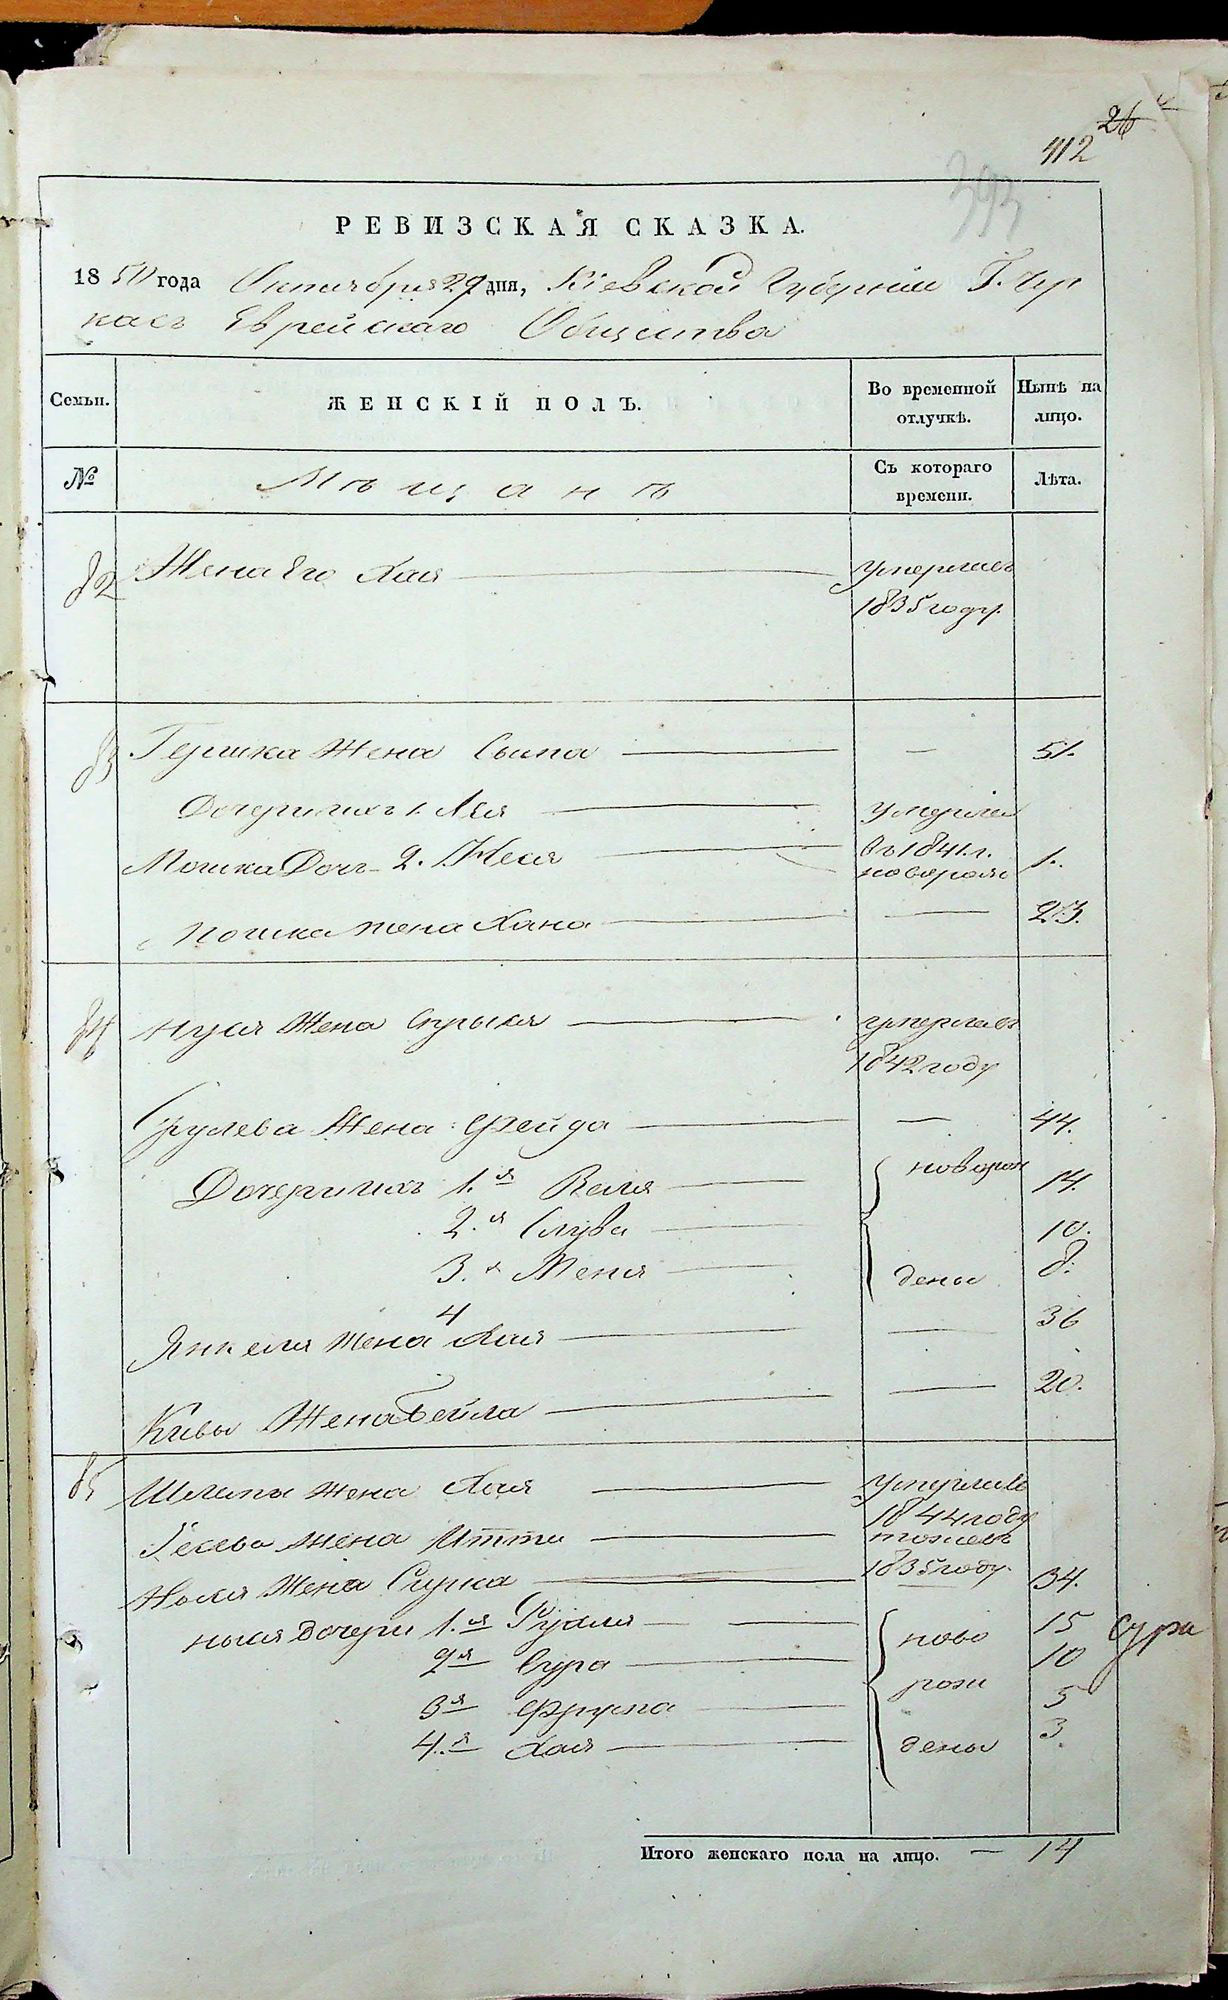 26
412
393
РЕВИЗСКАЯ СКАЗКА.
1850 года Октября 29 дня, Кіевской Губерніи Г. Чер
касъ Еврейскаго Общества
Семьи. ЖЕНСКІЙ ПОЛЪ. Во временной отлучкѣ. Нынѣ на лицо.
№ Мѣщанъ Съ котораго времени. Лѣта.
82 Жена Его Хая умерла въ
1835 году.
83 Гершка Жена Сыпа — 51.
Дочери ихъ 1. Лея умерла
въ 1841 г.
Мошка Дочь 2. Неся новорож 1.
Мошка жена Хана — 23.
84 Нуся Жена Сурыля умерла въ
1842 году
Срулева Жена Фейда — 44.
Дочери ихъ 1.я Веля новорож 14.
2.я Слува 10.
3.я Меня дены 8.
4
Янкеля жена Хая — 36
Кивы Жена Бейла — 20.
85 Шлемы жена Хая умерла въ
1844 году
Госева жена Итти тоже въ
1835 году.
Жена Сурка 34.
дочери 1.я ново 15
2я Сура 10 Сура
3я Фрума рож 5
4.я Хая дены 3.
Итого женскаго пола на лицо. — 14